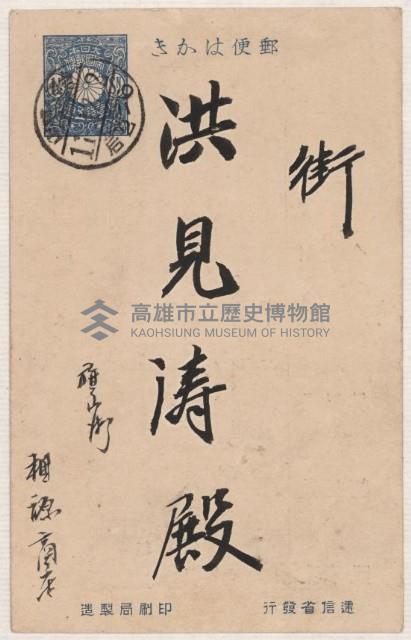 郵便はかき
大日本
街
洪見濤殿
旗山街
商店
高雄市立歷史博物館
KAOHSIUNG MUSEUM OF HISTORY
遞信省發行
印刷局製造